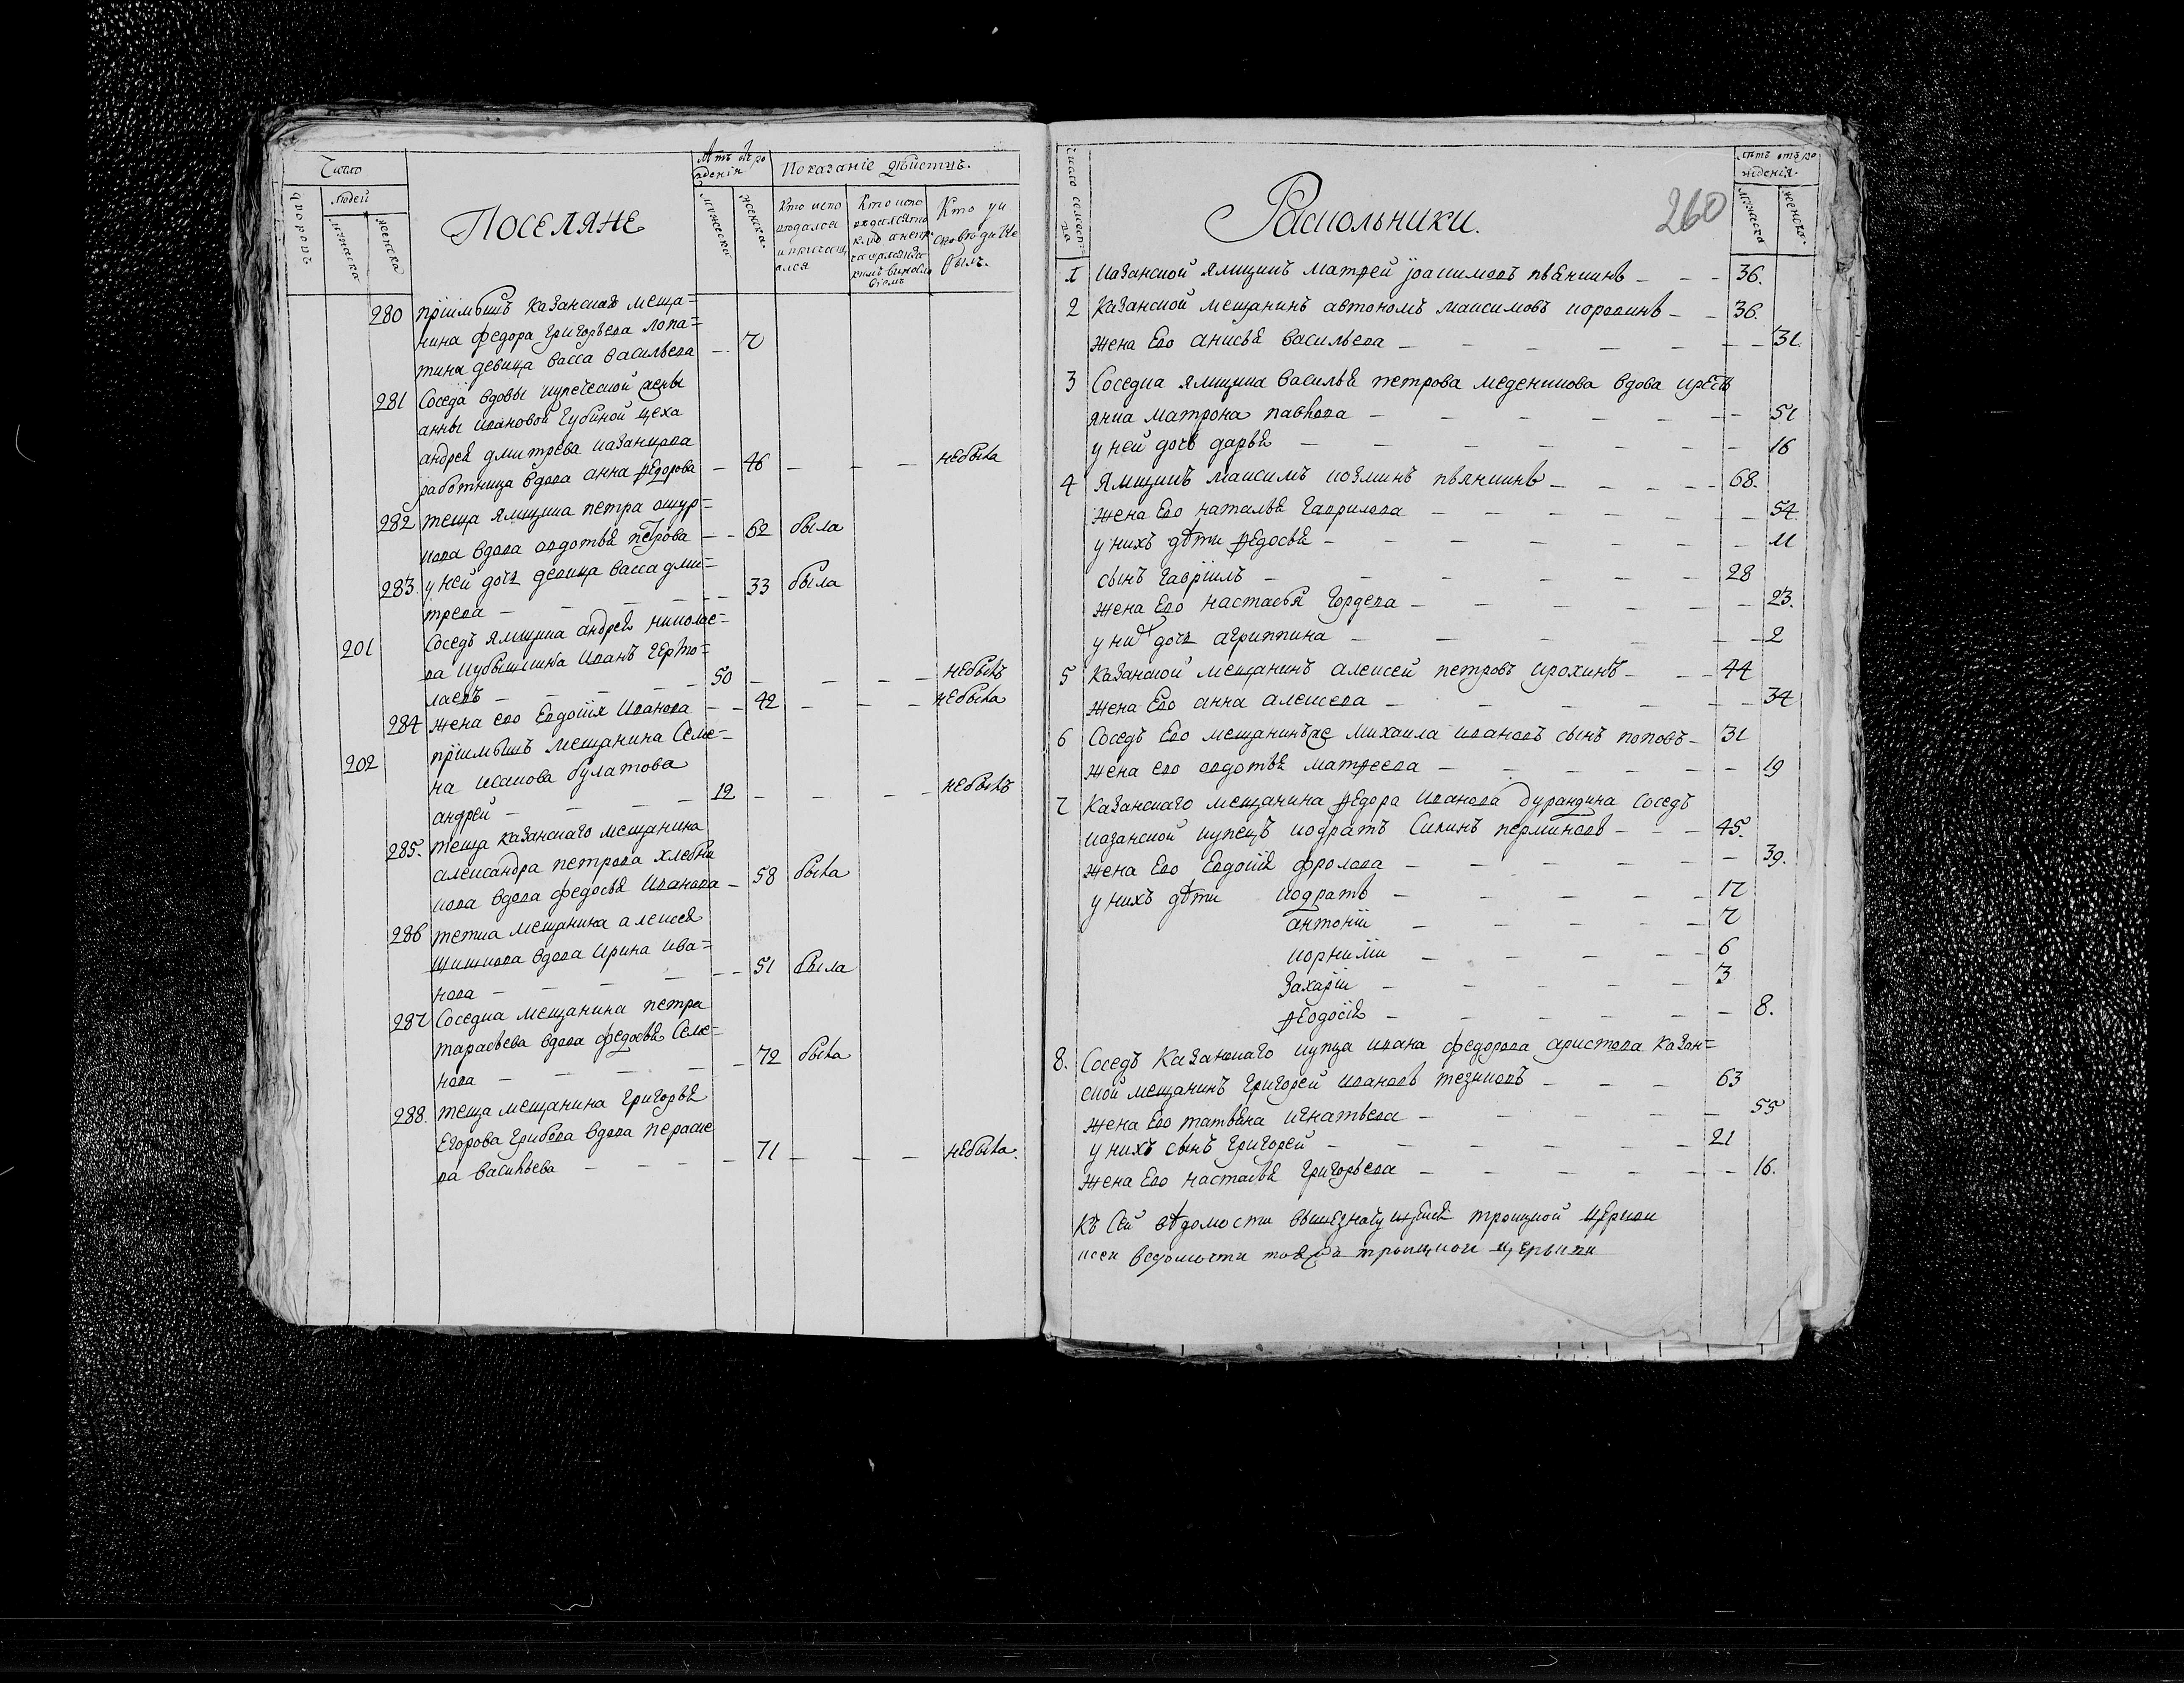 Число
Лѣтъ отъ ро
Показаніе дѣйствъ.
людей
ждения
дворовъ
мужеска
женска
ПОСЕЛЯНЕ
мужеска
женска
Кто испо
ведался
и причащ
ался
Кто испо
Кто у и
споведи не
былъ.
280 приимышъ казанскаго меща=
нина федора григорьева лопа=
тина девица васса васильева — 7
281 Соседа вдовы купеческой жены
анны ивановой губиной цеха
андрея дмитрева казанцова
работница вдова анна федорова — 46 — — — небыла
282 теща ямщика петра ошур=
кова вдова авдотья петрова — — 62 была
283. у ней дочь девица васса дми=
трева — — — — 33 была
201 Соседъ ямщика андрея николае=
ва кубышкина иванъ
лаевъ — — — — 50 — — — небылъ
284 жена ево Евдокия Иванова — — 42 — — — небыла
202 приимышъ мещанина Семе=
на исакова булатова
андрей — — — — 12 — — — небылъ
285. теща казанскаго мещанина
александра петрова хлебни
кова вдова федосья Иванова — 58 была
286 тетка мещанина алексея
шишкова вдова Ирина ива=
нова — — — — — 51 была
287 Соседка мещанина петра
тарасьева вдова федосья Семе=
нова — — — — — 72 была
288. теща мещанина григорья
Егорова грибова вдова параске
ва васильева — — — — 71 — — — небыла.
число семейства
Раскольники.
260
лѣтъ отъ ро
ждения.
мужеска
женска
1 казанской ямщикъ матфей иоакимовъ пьянкинъ — — — 36.
2 казанской мещанинъ автономъ максимовъ королинъ — — 36.
жена Ево анисья васильева — — — — — — — 31.
3 Соседка ямщика василья петрова меденикова вдова крестъ
янка матрона павлова — — — — — — — 51
у ней дочь дарья — — — — — — — 16
4 Ямщикъ максимъ козминъ пьянкинъ — — — — — 68.
жена Ево наталья гаврилова — — — — — — — 54.
у нихъ дѣти федосья — — — — — — — 11
сынъ гавриилъ — — — — — — 28
жена Ево настасья гордева — — — — — — 23.
у них дочь агриппина — — — — — 2
5 казанской мещанинъ алексей петровъ крохинъ — — — 44
жена Ево анна алексева — — — — — — — 34
6 Соседъ Ево мещанинъ же михаила ивановъ сынъ поповъ — 31
жена ево авдотья матфеева — — — — — — 19
7 казанскаго мещанина федора Иванова дурандина соседъ
казанской купецъ кодратъ Силинъ перминовъ — — — 45.
жена Ево Евдокия фролова — — — — — — — 39.
у нихъ дѣти кодратъ — — — — — 17
антоній — — — — — 7
корнилій — — — — — 6
захарій — — — — — 3
федосія — — — — — — 8.
8. Соседъ казанскаго купца ивана федорова аристова казан=
ской мещанинъ григорей ивановъ тезиковъ — — — 63
жена Ево татьяна игнатьева — — — — — — 55
у нихъ сынъ григорей — — — — — — 21
жена Ево настасья григорьева — — — — — — 16.
къ сей вѣдомости троицкой церкви
к сей ведомости тоя ж троицкой церькви